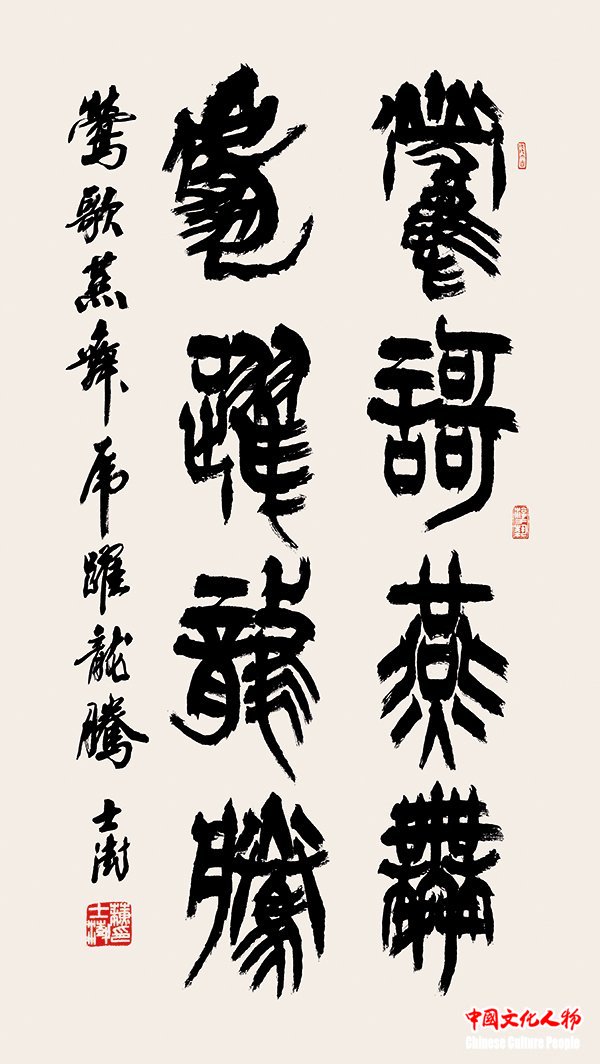 鶯謌燕舞
虎躍龍騰
鶯歌燕舞虎躍龍騰 士澍
蘇士澍印
中國文化人物
Chinese Culture People